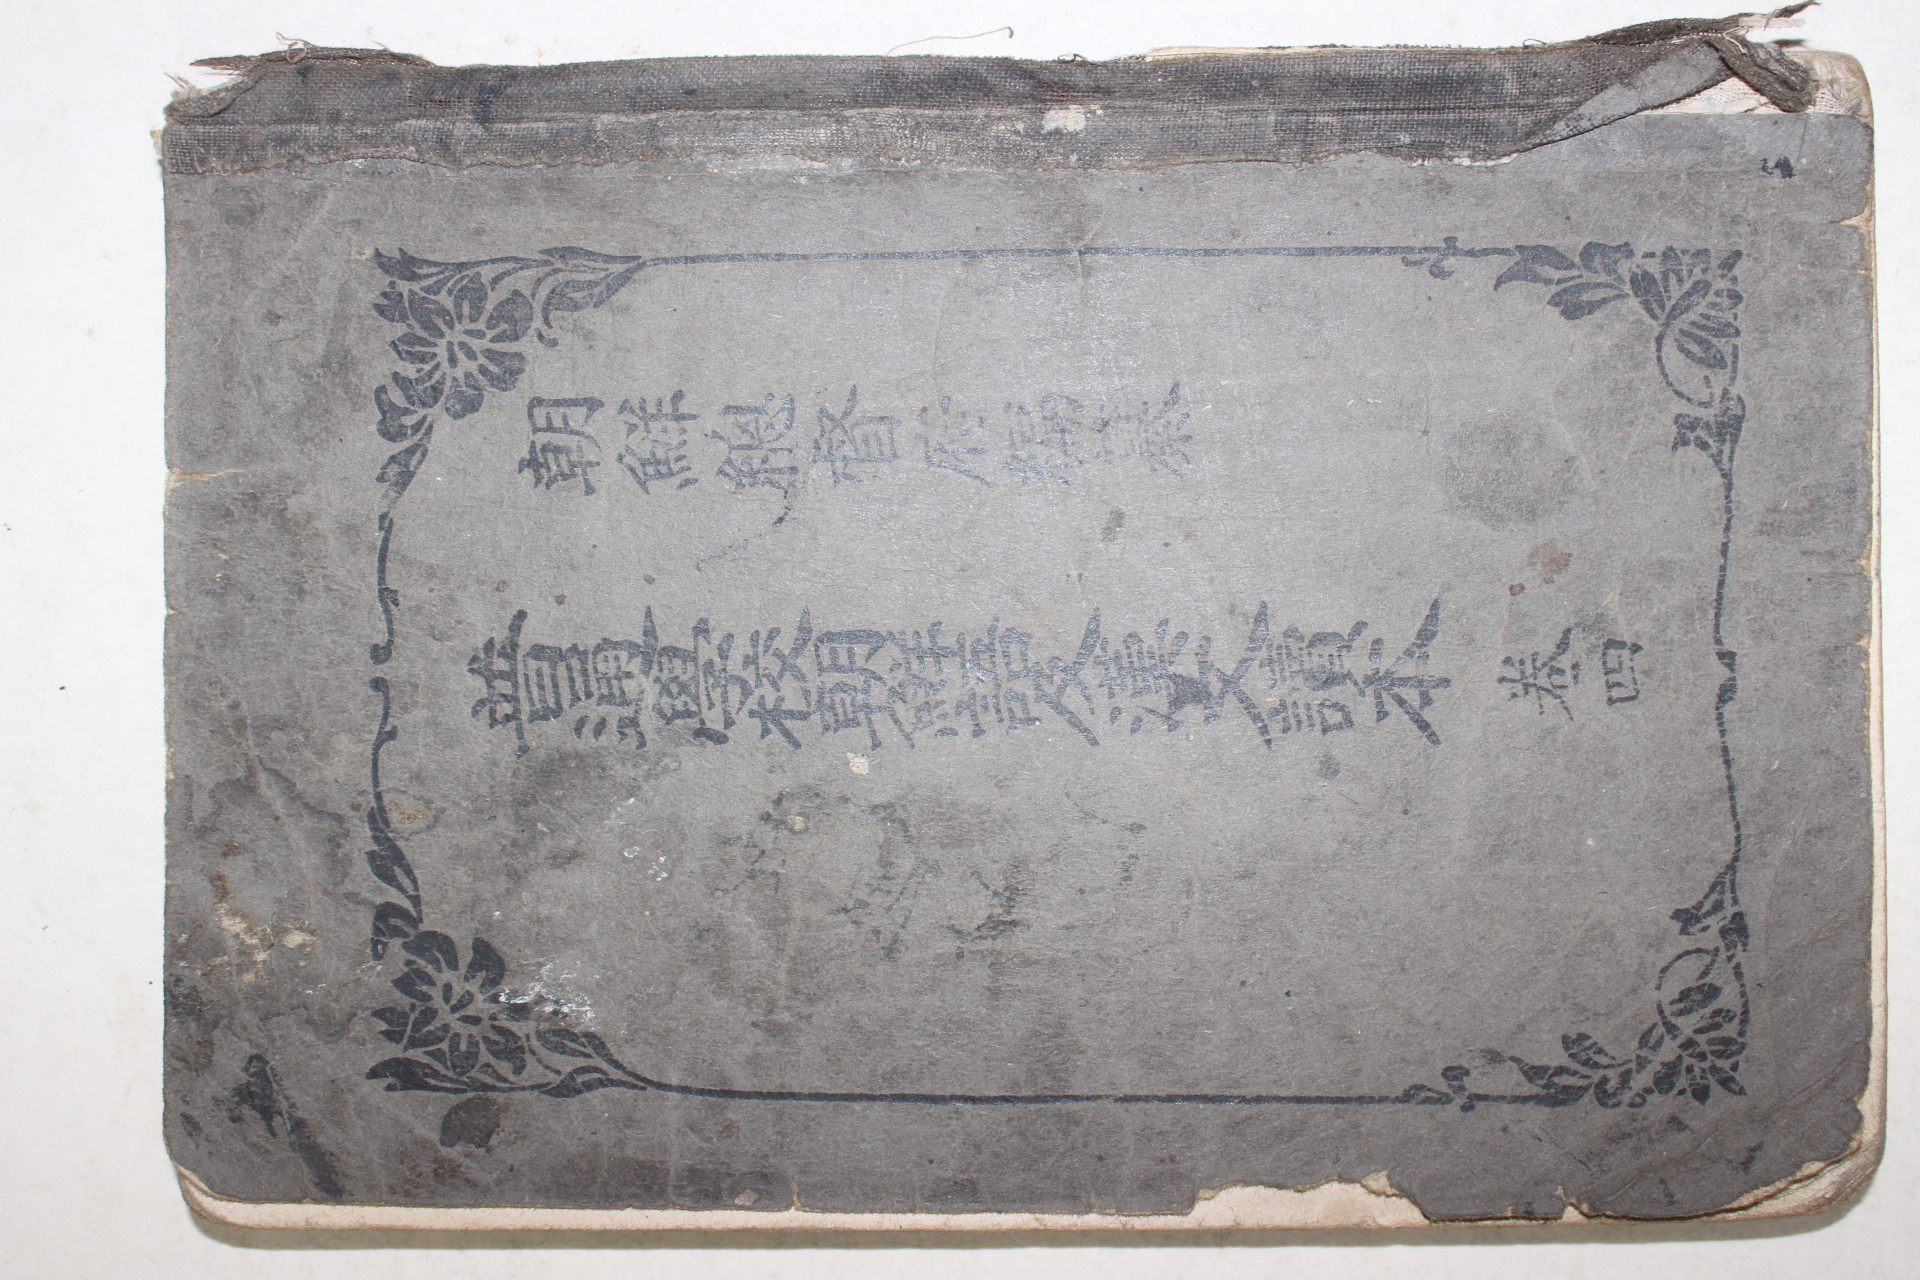 朝鮮總督府編纂
普通學校朝鮮語及漢文讀本 卷四